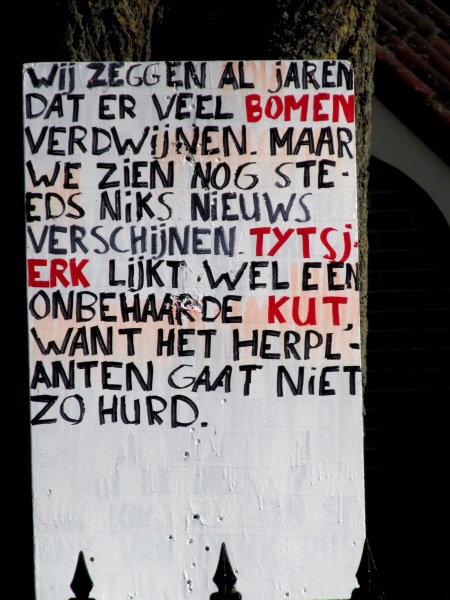 WIJ ZEGGEN AL JAREN
DAT ER VEEL BOMEN
VERDWIJNEN. MAAR
WE ZIEN NOG STE-
EDS NIKS NIEUWS
VERSCHIJNEN. TYTSJ-
ERK LIJKT WEL EEN
ONBEHAARDE KUT,
WANT HET HERPL-
ANTEN GAAT NIET
ZO HURD.